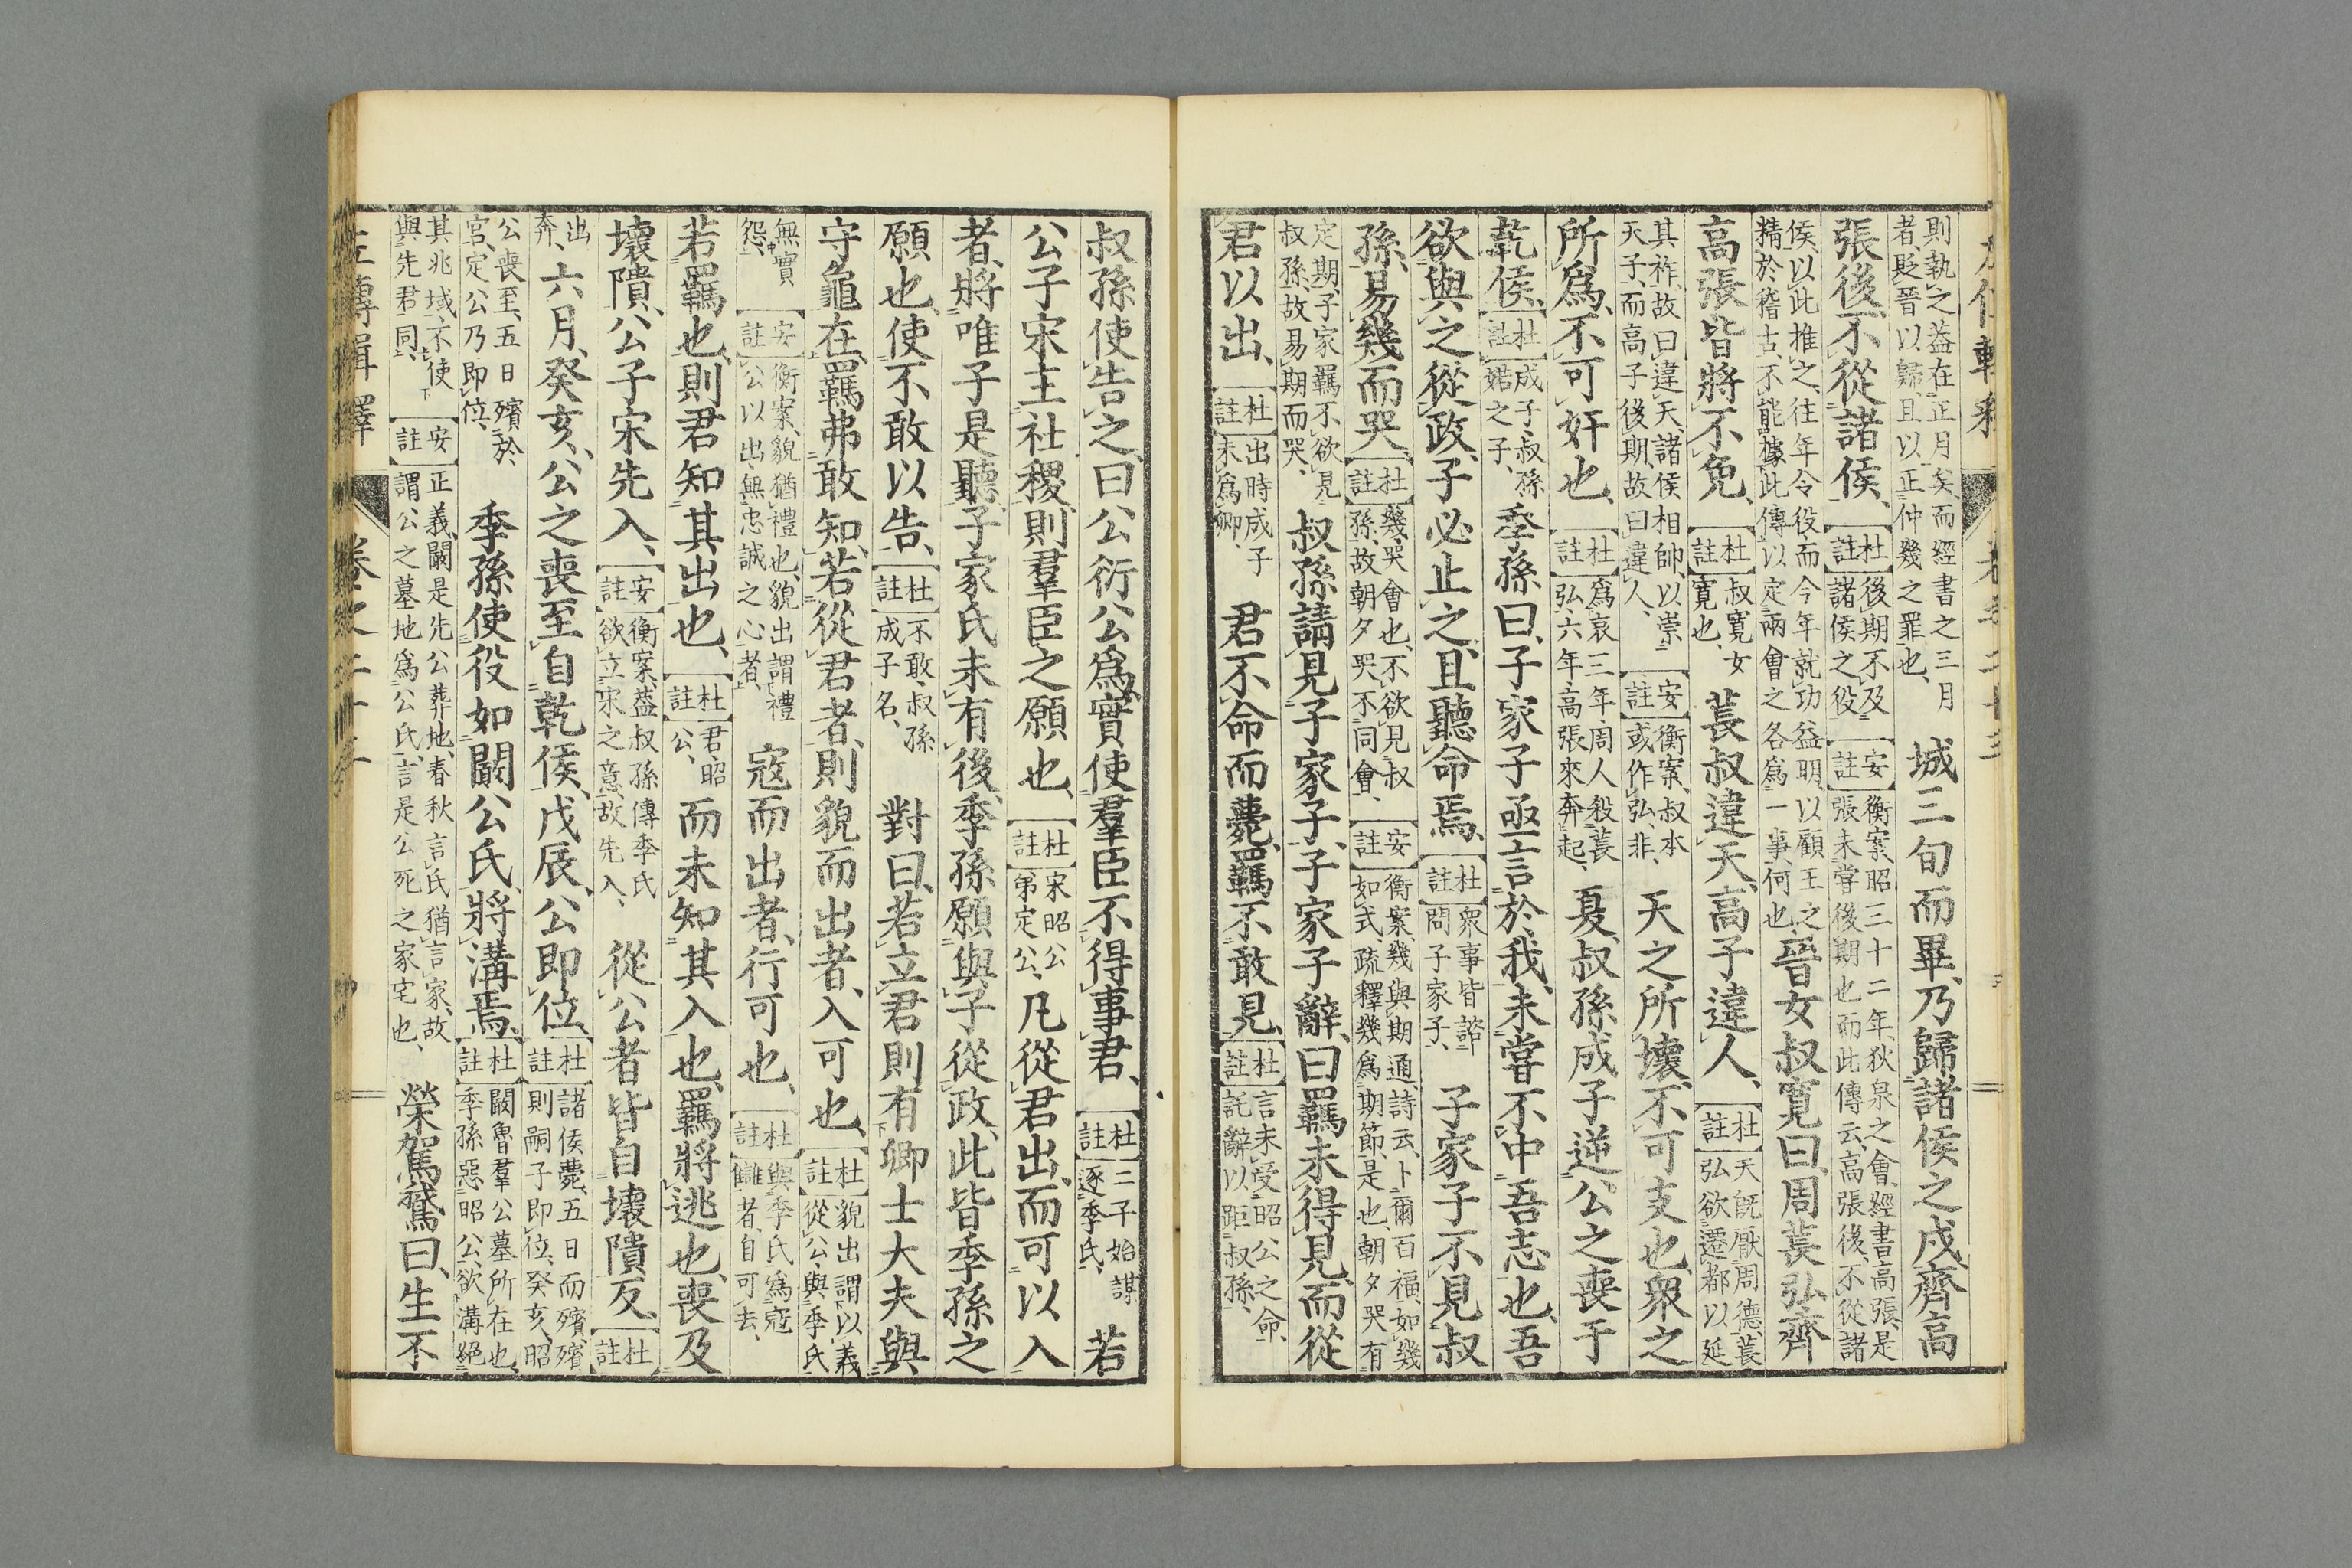 則執之益在正月矣、而經書之三月
者、貶晉以歸且以正仲幾之罪也、
城三旬而畢、乃歸諸侯之戍、齊高
張後、不從諸侯、
杜註
後期不及
諸侯之役
安註
衡案、昭三十二年、狄泉之會、經書高張、是
張未嘗後期也、而此傳云、高張後、不從諸
侯、以此推之、往年令役、而今年就功益明、以顧王之
精於稽古、不能據此傳以定兩會之各爲一事、何也、
晉女叔寬曰、周萇弘、齊
高張、皆將不免、
杜註
叔寬、女
寬也、
萇叔違天、高子違人、
杜註
天既厭周德、萇
弘欲遷都以延
其祚、故曰違天、諸侯相帥、以崇
天子、而高子後期、故曰違人、
安註
衡案、叔本
或作弘、非、
天之所壞、不可支也、衆之
所爲、不可奸也、
杜註
爲哀三年、周人殺萇
弘、六年、高張來奔起、
夏、叔孫成子逆公之喪于
乾侯、
杜註
成子、叔孫
婼之子、
季孫曰、子家子亟言於我、未嘗不中吾志也、吾
欲與之從政、子必止之、且聽命焉、
杜註
衆事皆諮
問子家子、
子家子不見叔
孫、易幾而哭、
杜註
幾、哭會也、不欲見叔
孫、故朝夕哭不同會、
安註
衡案、幾與期通、詩云、卜爾百福、如幾
如式、疏釋幾爲期節、是也、朝夕哭有
定期、子家羈不欲見
叔孫、故易期而哭、
叔孫請見子家子、子家子辭、曰、羈未得見、而從
君以出、
杜註
出時成子
未爲卿、
君不命而薨、羈不敢見、
杜註
言未受昭公之命、
託辭以距叔孫、
叔孫使告之曰、公衍公爲、實使羣臣不得事君、
杜註
二子始謀
逐季氏、
若
公子宋主社稷、則羣臣之願也、
杜註
宋昭公
弟定公、
凡從君出、而可以入
者、將唯子是聽、子家氏未有後、季孫願與子從政、此皆季孫之
願也、使不敢以告、
杜註
不敢、叔孫
成子名、
對曰、若立君、則有卿士大夫與
守龜在、羈弗敢知、若從君者、則貌而出者、入可也、
杜註
貌出謂以義
從公、與季氏
無實
怨、
安註
衡案、貌猶禮也、貌出謂禮
公以出、無忠誠之心者、
寇而出者、行可也、
杜註
與季氏爲寇
讎者、自可去、
若羈也、則君知其出也、
杜註
君、昭
公、
而未知其入也、羈將逃也、喪及
壞隤、公子宋先入、
安註
衡案、益叔孫傳季氏
欲立宋之意、故先入、
從公者皆自壞隤反、
杜註
出
奔、
六月、癸亥、公之喪至自乾侯、戊辰、公即位、
杜註
諸侯薨、五日而殯、殯
則嗣子即位、癸亥、昭
公喪至、五日殯於
宮、定公乃即位、
季孫使役如闞公氏、將溝焉、
杜註
闞、魯羣公墓所在也、
季孫惡昭公、欲溝絕
其兆域、不使
與先君同、
安註
正義、闞是先公葬地、春秋言氏猶言家、故
謂公之墓地爲公氏、言是公死之家宅也、
榮駕鵞曰、生不
左傳輯釋